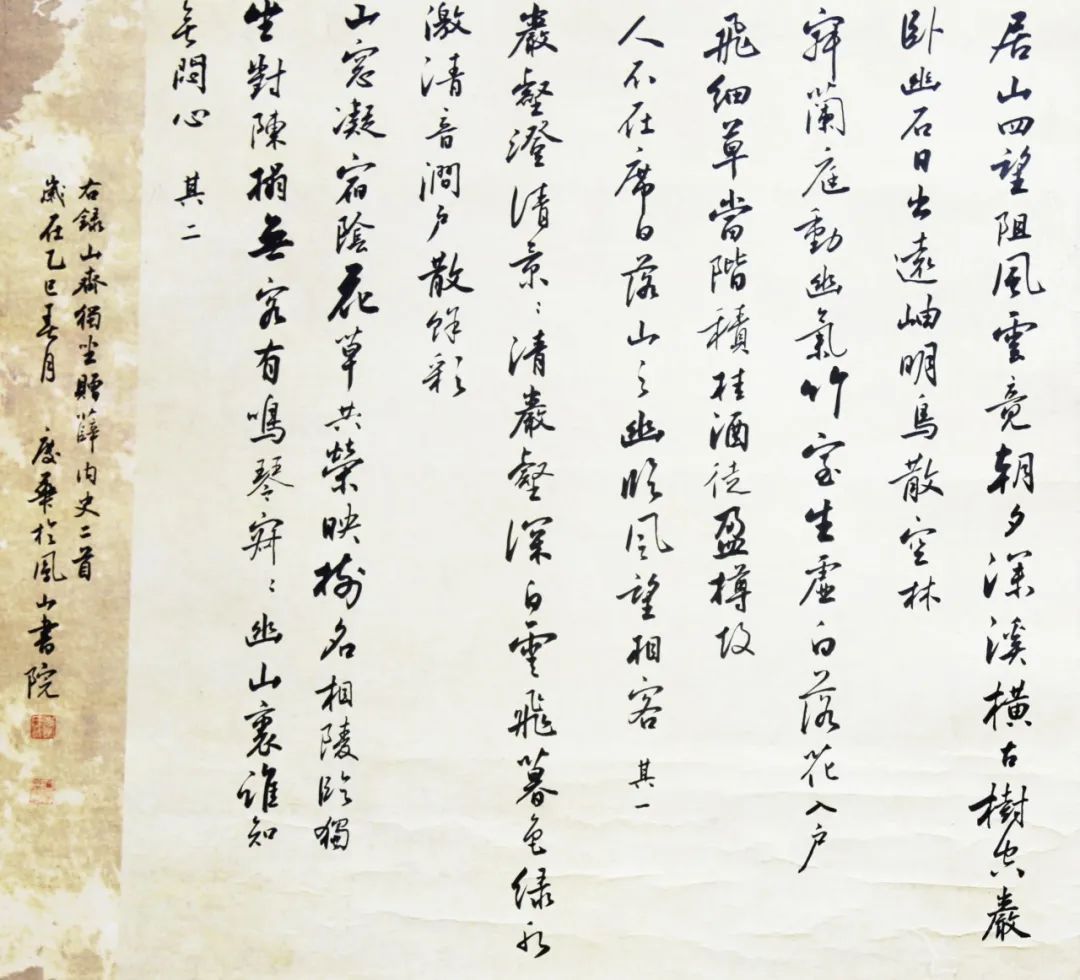 居山四望阻風雲竟朝夕深溪橫古樹空巖
卧幽石日出遠岫明鳥散空林
寂蘭庭動幽氣竹室生虛白落花入户
飛細草當階積桂酒徒盈樽故
人不在席日落山之幽臨風望相客 其一
巖壑澄清景〻清巖壑深白雲飛暮色緑水
激清音澗户散餘彩
山窓凝宿陰花草共榮映樹名相陵臨獨
坐對陳榻無客有鳴琴寂〻幽山裏誰知
無悶心 其二
右録山齋獨坐贈薛内史二首
歲在乙巳春月 於鳳山書院